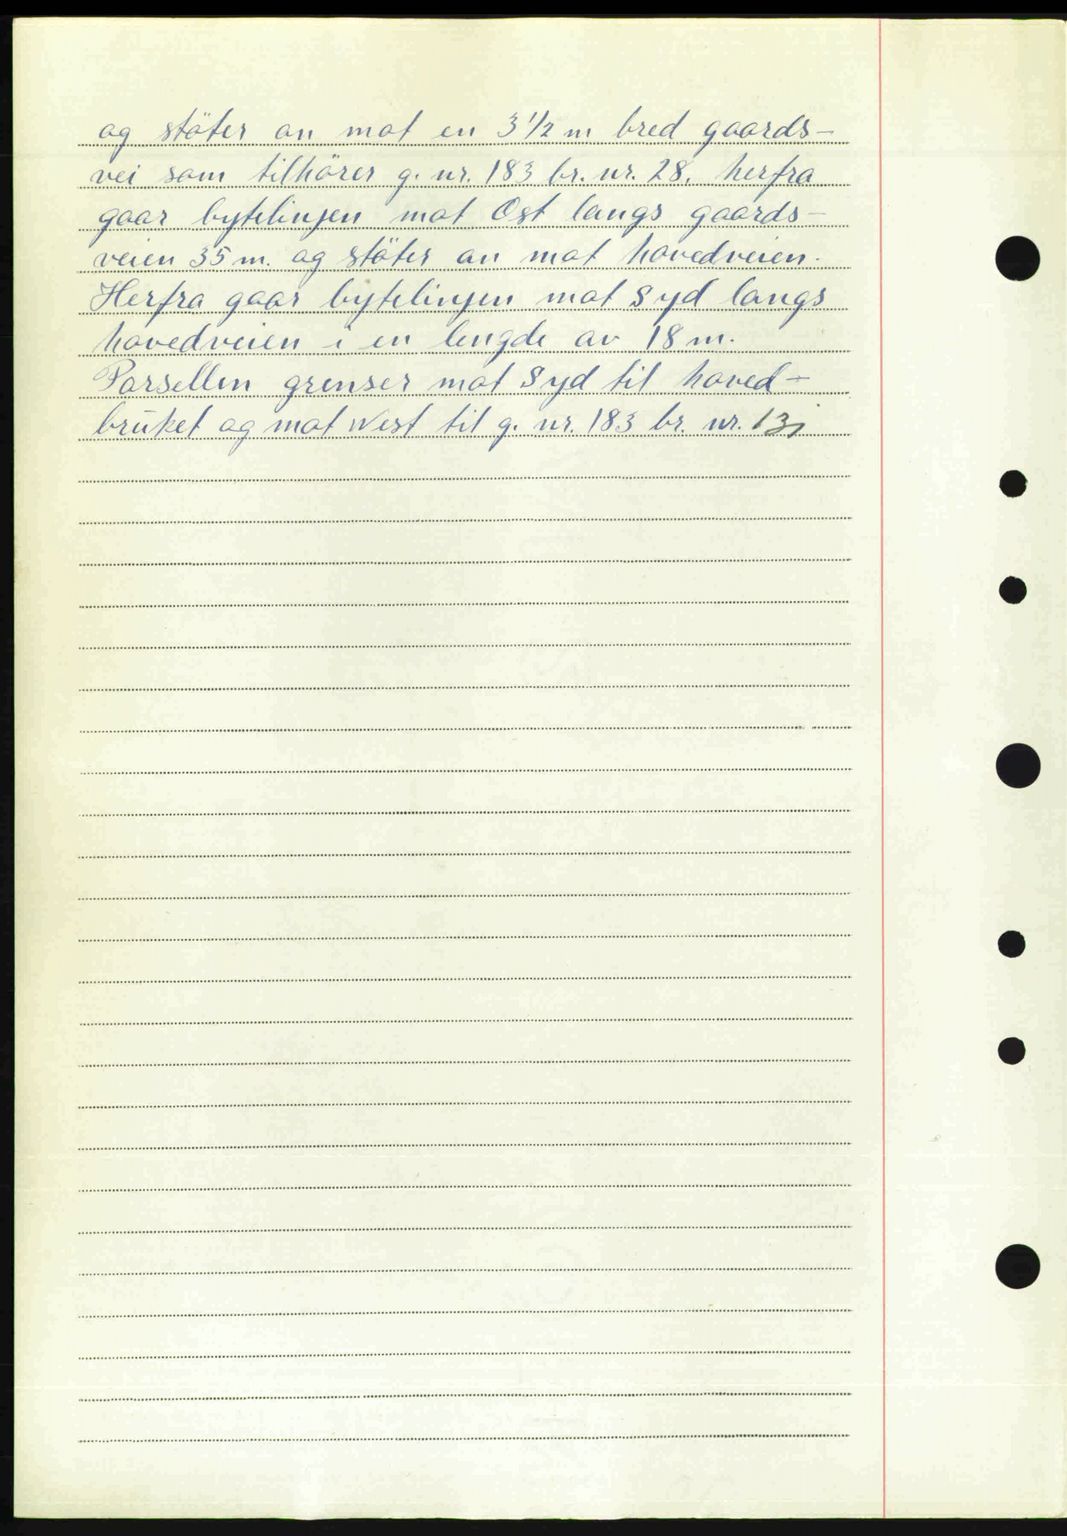 og stöter an mot en 3 1/2 m bred gaards-
vei som tilhörer g. nr. 183 br. nr. 28. herfra
gaar bytelinjen mot Ost langs gaards-
veien 35 m. og stöter an mot hovedveien.
Herfra gaar bytelinjen mot Syd langs
hovedveien i en lengde av 18 m.
Parsellen grenser mot Syd til hoved-
brüket og mot West til g. nr. 183 br. nr.